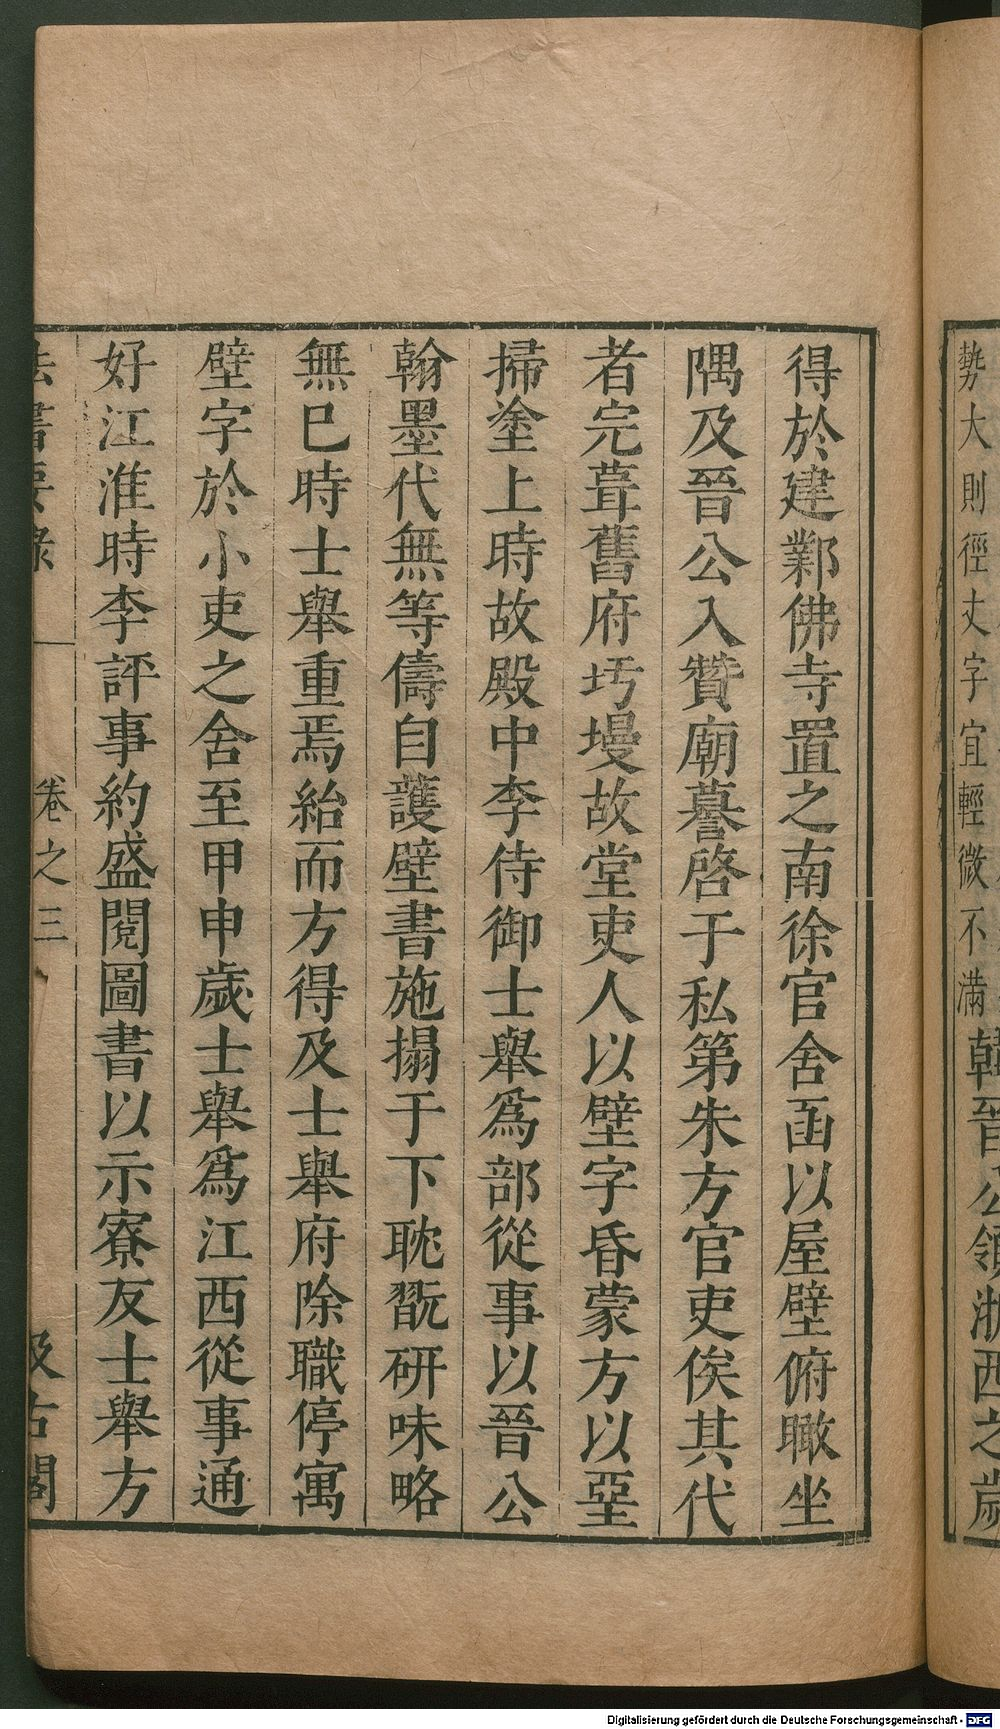 勢大則徑丈字宜輕微不滿韓晉公領浙西之歲
得於建鄴佛寺置之南徐官舍函以屋壁俯瞰坐
隅及晉公入贊廟謩啓于私第朱方官吏俟其代
者完葺舊府圬墁故堂吏人以壁字昏蒙方以堊
掃塗上時故殿中李侍御士舉爲部從事以晉公
翰墨代無等儔自護壁書施搨于下耽翫研味略
無巳時士舉重焉紿而方得及士舉府除職停寓
壁字於小吏之舍至甲申歲士舉爲江西從事通
好江淮時李評事約盛閱圖書以示寮友士舉方
法書要錄 卷之三 汲古閣
Digitalisierung gefördert durch die Deutsche Forschungsgemeinschaft - DFG